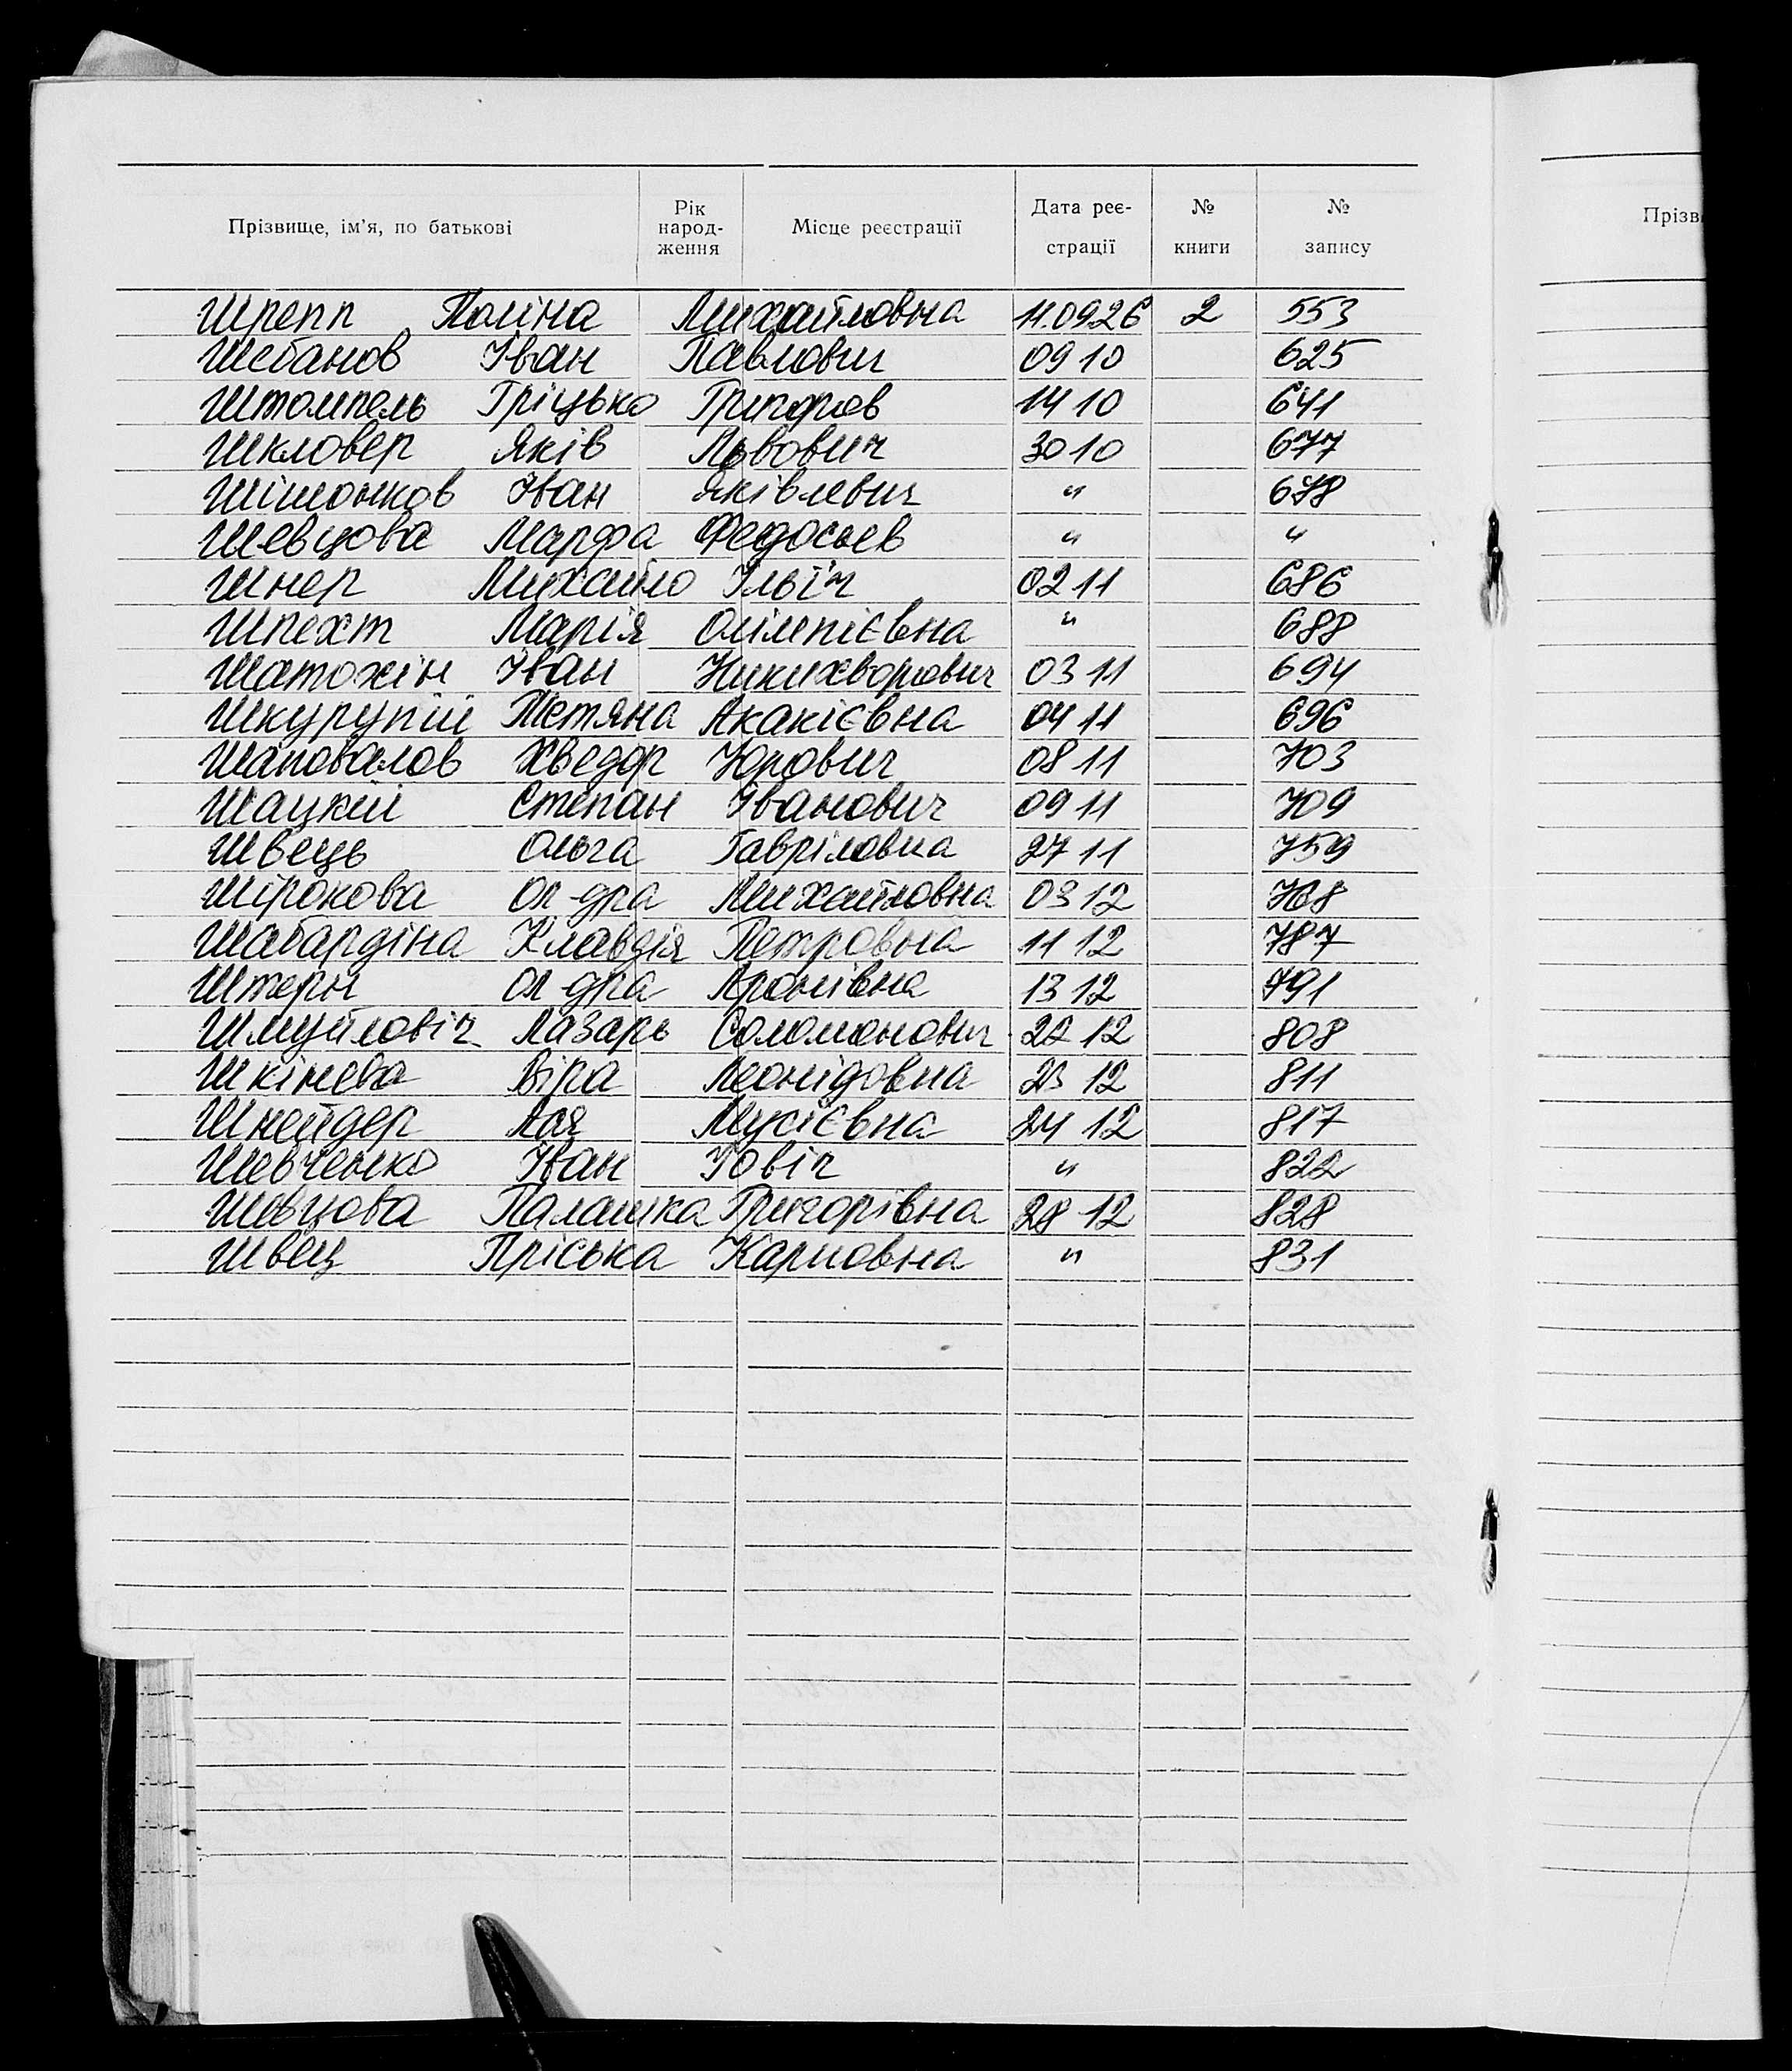 Прізвище, ім'я, по батькові Рік народ- ження Місце реєстрації Дата реє- страції № книги № запису
Прізв
Шрепп Поліна Михайловна 11.09.26 2 553
Шебанов Іван Павлович 09 10 625
Штомпель Гріцько Григоров 14 10 641
Шкловер Яків Львович 30 10 677
Шімонков Іван Яківлевич " 678
Шевцова Марфа Федосьев " "
Шнер Михайло Ільїч 02 11 686
Шпехт Марія Олімпієвна " 688
Шатохін Іван Никихворович 03 11 694
Шкурупій Тетяна Акакієвна 04 11 696
Шаповалов Хведор Юрович 08 11 703
Шацкій Степан Іванович 09 11 709
Швець Ольга Гавріловна 27 11 759
Шірокова Ол-дра Михайловна 03 12 768
Шабардіна Клавдія Петровна 11 12 787
Штерн Ол-дра Аронівна 13 12 791
Шмуйловіч Лазарь Соломонович 22 12 808
Шкінева Віра Леонідовна 23 12 811
Шнейдер Ася Мусієвна 24 12 817
Шевченко Іван Іовіч " 822
Шевцова Палашка Григорівна 28 12 828
Швец Пріська Карповна " 831